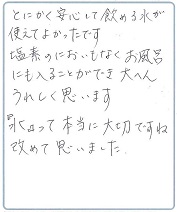 とにかく安心して飲める水が
使えてよかったです
塩素のにおいもなくお風呂
にも入ることができ大へん
うれしく思います
水って本当に大切ですね
改めて思いました